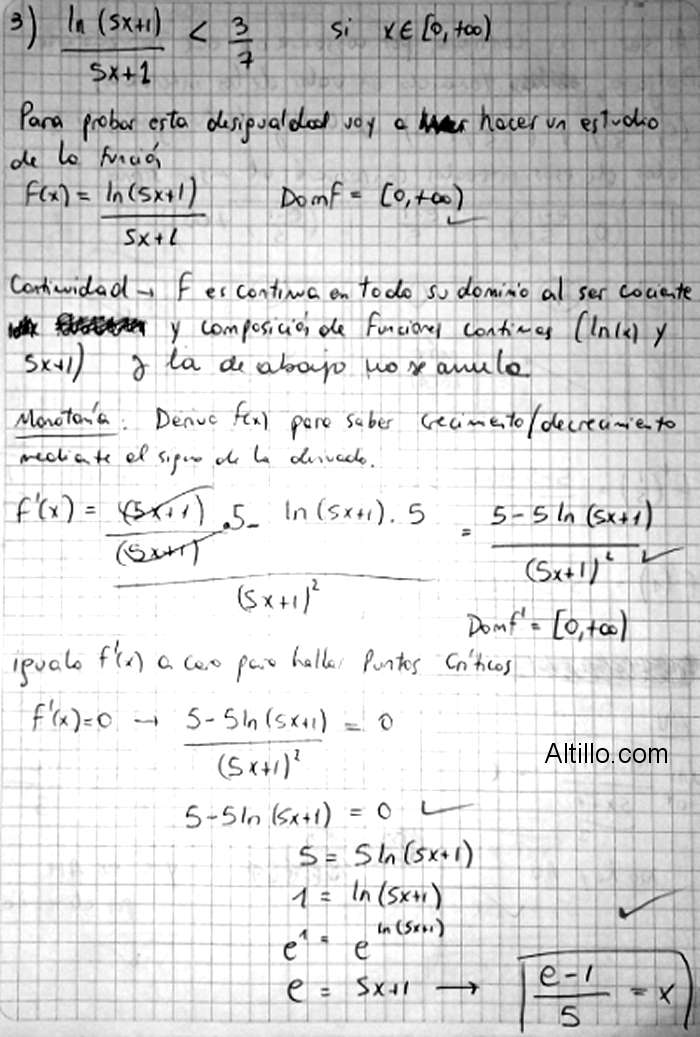 3) ln (5x+1) / 5x+1 < 3/7 si x ∈ [0, +∞)
Para probar esta desigualdad voy a hacer un estudio
de la función
F(x) = ln(5x+1) / 5x+1 Dom F = [0, +∞)
Continuidad → F es continua en todo su dominio al ser cociente
y composición de funciones continuas (ln(x) y
5x+1) y la de abajo no se anula
Monotonía: Derivo f(x) para saber crecimiento/decrecimiento
mediante el signo de la derivada.
f'(x) = (5x+1)/(5x+1) . 5 - ln(5x+1) . 5 / (5x+1)² = 5 - 5 ln(5x+1) / (5x+1)²
Dom f' = [0, +∞)
igualo f'(x) a cero para hallar Puntos Críticos
f'(x)=0 → 5 - 5ln(5x+1) / (5x+1)² = 0
Altillo.com
5 - 5ln(5x+1) = 0
5 = 5ln(5x+1)
1 = ln(5x+1)
e¹ = e^ln(5x+1)
e = 5x+1 → e-1 / 5 = x